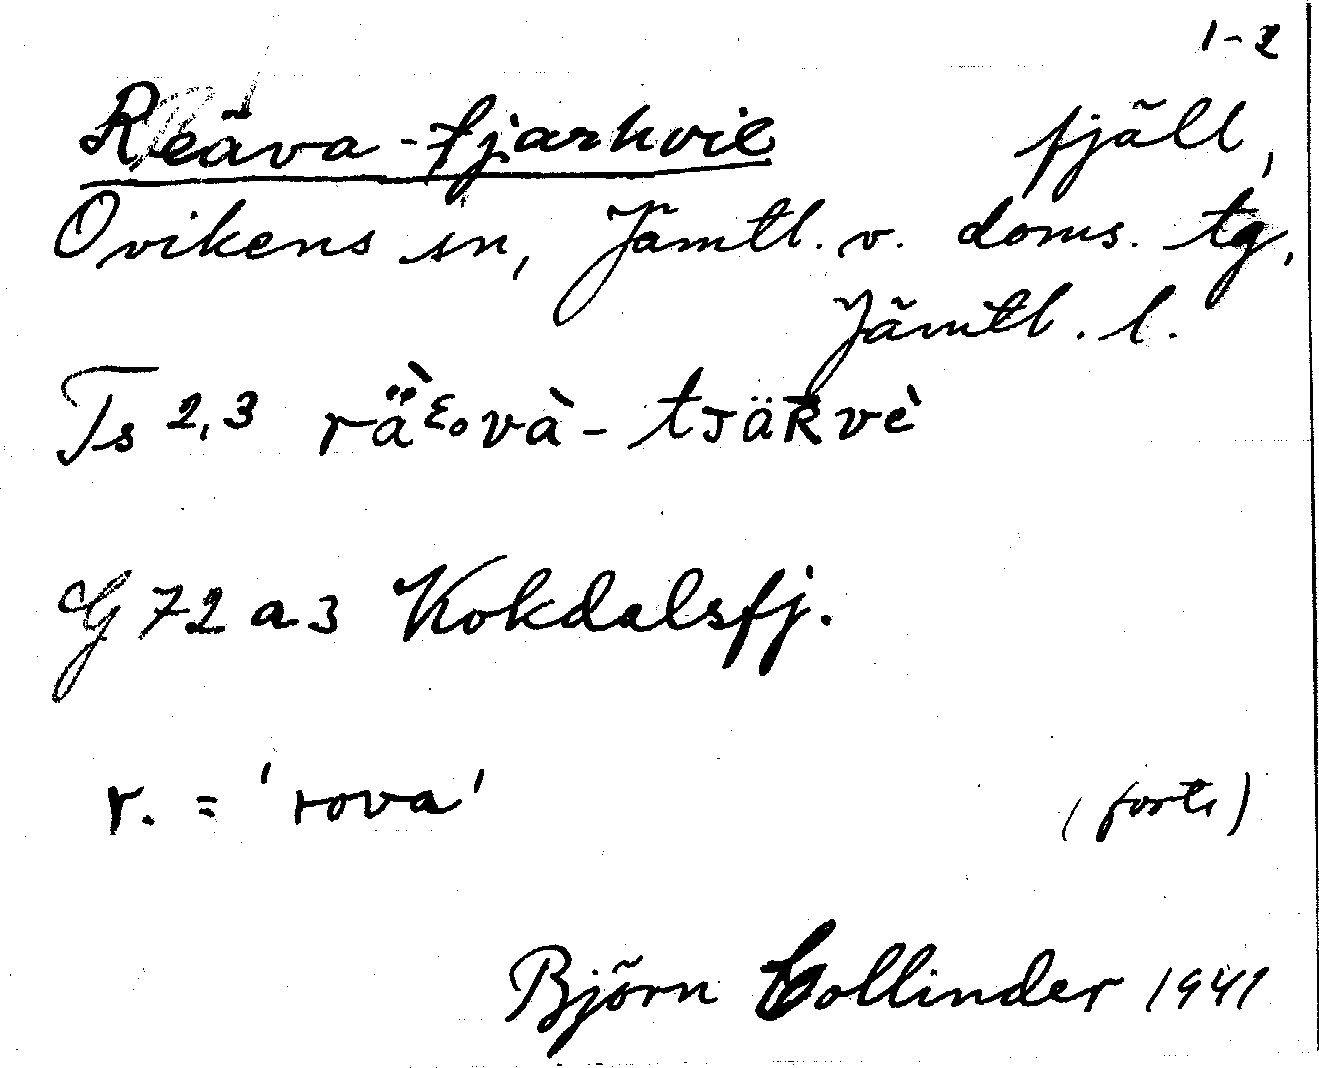 1-2
Reäva-tjarhvie fjäll,
Ovikens sn, Jämtl. v. doms. tg,
Jämtl. l.
Ts 2,3
G 72 a 3 Kokdalsfj.
r. = 'rova' (forts)
Björn Collinder 1941